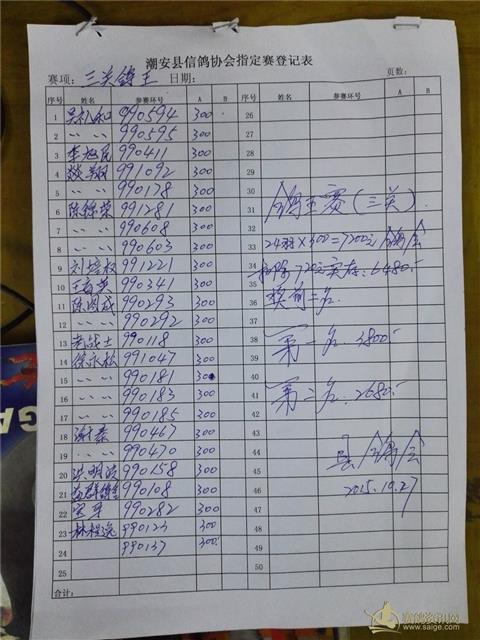 潮安县信鸽协会指定赛登记表
赛项: 三关鸽王 日期: 页数:
序号 姓名 参赛环号 A B 序号 姓名 参赛环号 A B
1 990594 300 26
2 〃 〃 990595 300 27
3 990411 300 28
4 991092 300 29
5 〃 〃 990178 300 30
6 陈锦荣 991281 300 31 鸽王赛(三关)
7 〃 〃 990608 300 32
8 〃 〃 990603 300 33 24羽×300=7200元 鸽会
9 刘培权 991221 300 34 扣除720元实存:6480.-
10 990341 300 35
11 990293 300 36 奖前二名.
12 〃 〃 990292 300 37
13 老战士 990118 300 38 第一名. 3800.-
14 徐永松 991047 300 39
15 〃 〃 990181 300 40
16 〃 〃 990183 300 41 第二名. 2680.-
17 〃 〃 990185 300 42
18 990467 300 43
19 〃 〃 990470 300 44 县鸽会
20 洪明波 990158 300 45
21 990108 300 46 2015.10.27
22 990282 300 47
23 990123 300 48
24 990137 300 49
25 50
合计:
赛鸽资讯网
www.saige.com